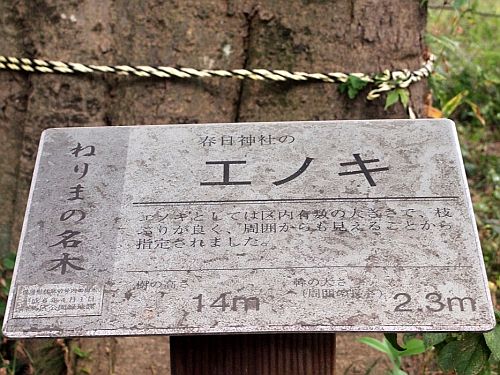 ねりまの名木
春日神社の
エノキ
エノキとしては区内有数の大きさで、枝
ぶりが良く、周囲からも見えることから
指定されました。
樹の高さ
14m
幹の太さ
(周囲の長さ)
2.3m
平成6年4月1日